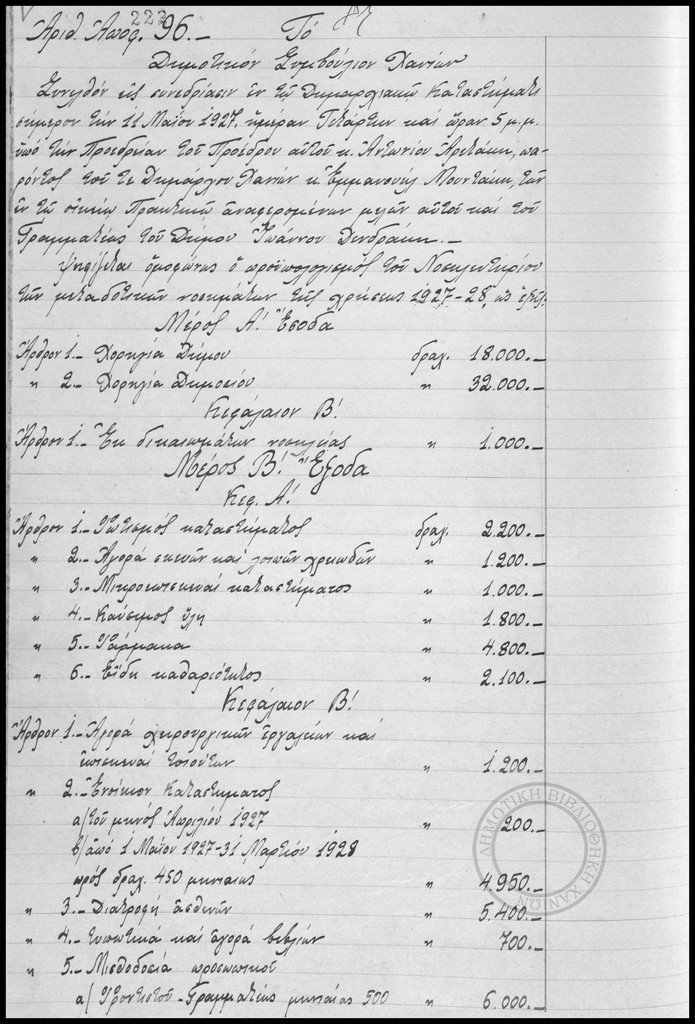 222
Ἀριθ. Ἀποφ. 96.- Τό
Δημοτικόν Συμβούλιον Χανίων
Συνελθόν εἰς συνεδρίασιν ἐν τῷ Δημαρχιακῷ Καταστήματι
σήμερον τήν 11 Μαΐου 1927, ἡμέραν Τετάρτην καί ὥραν 5 μ.μ.
ὑπό τήν Προεδρείαν τοῦ Προέδρου αὐτοῦ κ. Ἀντωνίου Ἀρετάκη, πα-
ρόντος τοῦ τε Δημάρχου Χανίων κ. Ἐμμανουήλ Μουντάκη, τῶν
ἐν τῷ οἰκείῳ Πρακτικῷ ἀναφερομένων μελῶν αὐτοῦ καί τοῦ
Γραμματέως τοῦ Δήμου Ἰωάννου Δενδράκη.-
Ψηφίζεται ὁμοφώνως ὁ προϋπολογισμός τοῦ Νοσηλευτηρίου
τῶν μεταδοτικῶν νοσημάτων τῆς χρήσεως 1927-28, ὡς ἑξῆς:
Μέρος Α! Ἔσοδα
Ἄρθρον 1.- Χορηγία Δήμου δραχ. 18.000.-
" 2.- Χορηγία Δημοσίου " 32.000.-
Κεφάλαιον Β!
Ἄρθρον 1.- Ἐκ δικαιωμάτων νοσηλείας " 1.000.-
Μέρος Β! Ἔξοδα
Κεφ. Α!
Ἄρθρον 1.- Φωτισμός καταστήματος δραχ. 2.200.-
" 2.- Ἀγορά σκευῶν καί λοιπῶν χρειωδῶν " 1.200.-
" 3.- Μικροεπισκευαί καταστήματος " 1.000.-
" 4.- Καύσιμος ὕλη " 1.800.-
" 5.- Φάρμακα " 4.800.-
" 6.- Εἴδη καθαριότητος " 2.100.-
Κεφάλαιον Β!
Ἄρθρον 1.- Ἀγορά χειρουργικῶν ἐργαλείων καί
ἐπισκευαί τοιούτων " 1.200.-
" 2.- Ἐνοίκιον Καταστήματος
α/ τοῦ μηνός Ἀπριλίου 1927 " 200.-
β/ ἀπό 1 Μαΐου 1927-31 Μαρτίου 1928
πρός δραχ. 450 μηνιαίως " 4.950.-
" 3.- Διατροφή ἀσθενῶν " 5.400.-
" 4.- Τυπωτικά καί ἀγορά βιβλίων " 700.-
" 5.- Μισθοδοσία προσωπικοῦ
α/ Φροντιστοῦ-Γραμματέως μηνιαίως 500 " 6.000.-
ΔΗΜΟΤΙΚΗ ΒΙΒΛΙΟΘΗΚΗ ΧΑΝΙΩΝ